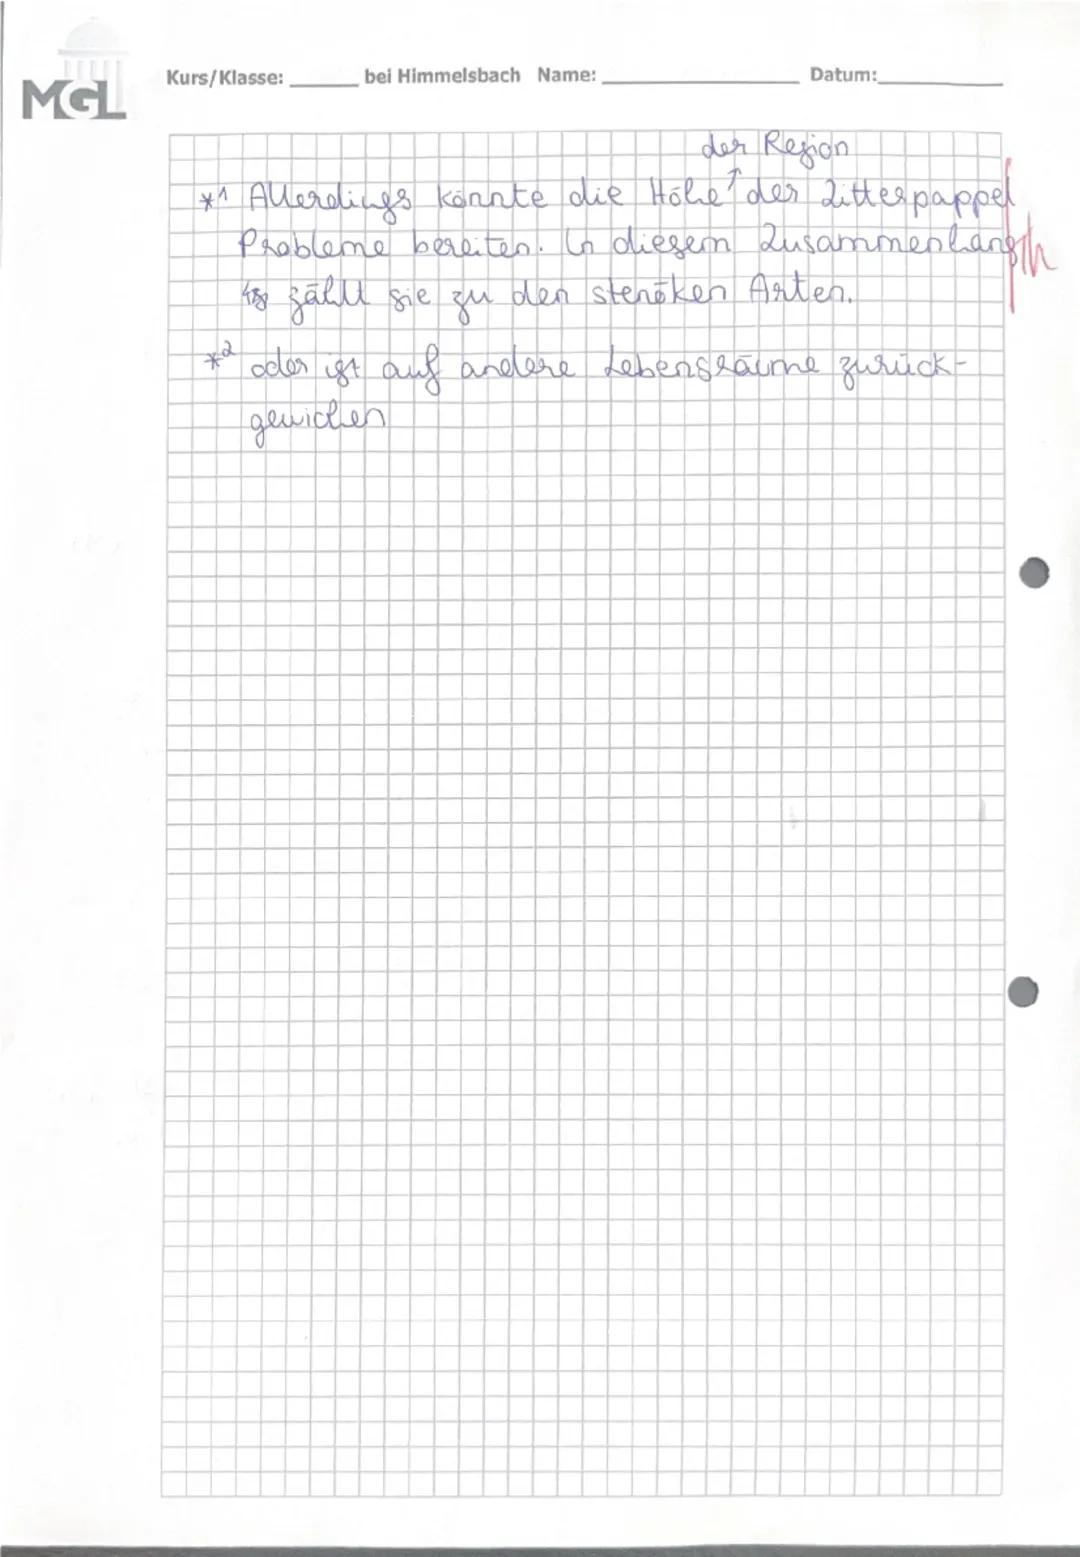 MGL
Kurs/Klasse: ______ bei Himmelsbach Name: ____________________ Datum: ____________
der Region
*1 Allerdings könnte die Höhe ↑ der Zitterpappel
Probleme bereiten. In diesem Zusammenhang
zählt sie zu den stenöken Arten.
*2 oder ist auf andere Lebensräume zurück-
gewichen